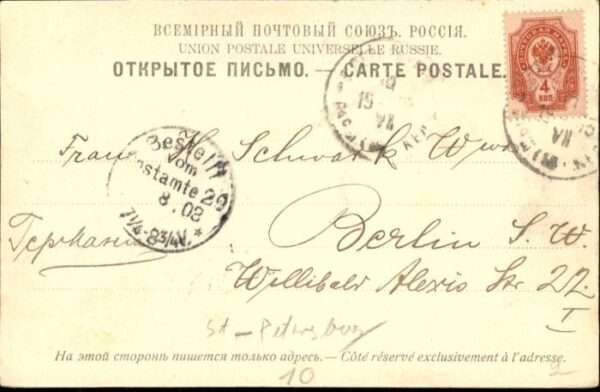 ВСЕМІРНЫЙ ПОЧТОВЫЙ СОЮЗЪ. РОССІЯ.
UNION POSTALE UNIVERSELLE RUSSIE.
ОТКРЫТОЕ ПИСЬМО. — CARTE POSTALE.
4
КОП
19
VII
VII
Bestellt
vom
Postamte 29
8.02
7¼-8¾V.
*
Frau H. Schwark Wwe
Германія
Berlin S. W.
Willibald Alexis Str 22
I
St-Petersburg
На этой сторонѣ пишется только адресъ. — Côté réservé exclusivement à l'adresse.
10